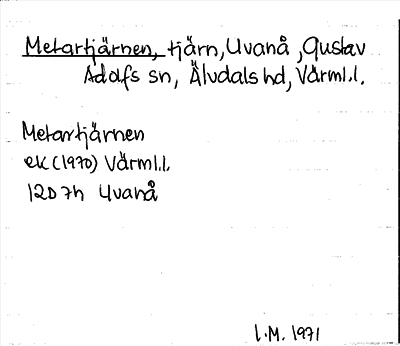 Metartjärnen, tjärn, Uvanå, Gustav
Adolfs sn, Älvdals hd, Värml.l.
Metartjärnen
ek (1970) Värml.l.
12D 7h Uvanå
I.M. 1971